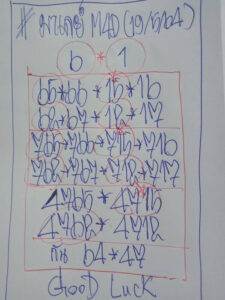 # มาเลย์ M4D (19/5/64)
6 * 1
65*66 * 15*16
62*67 * 12*17
765*766*715*716
762*767*712*717
4765 * 4715
4762 * 4712
กัน 64*47
GooD Luck